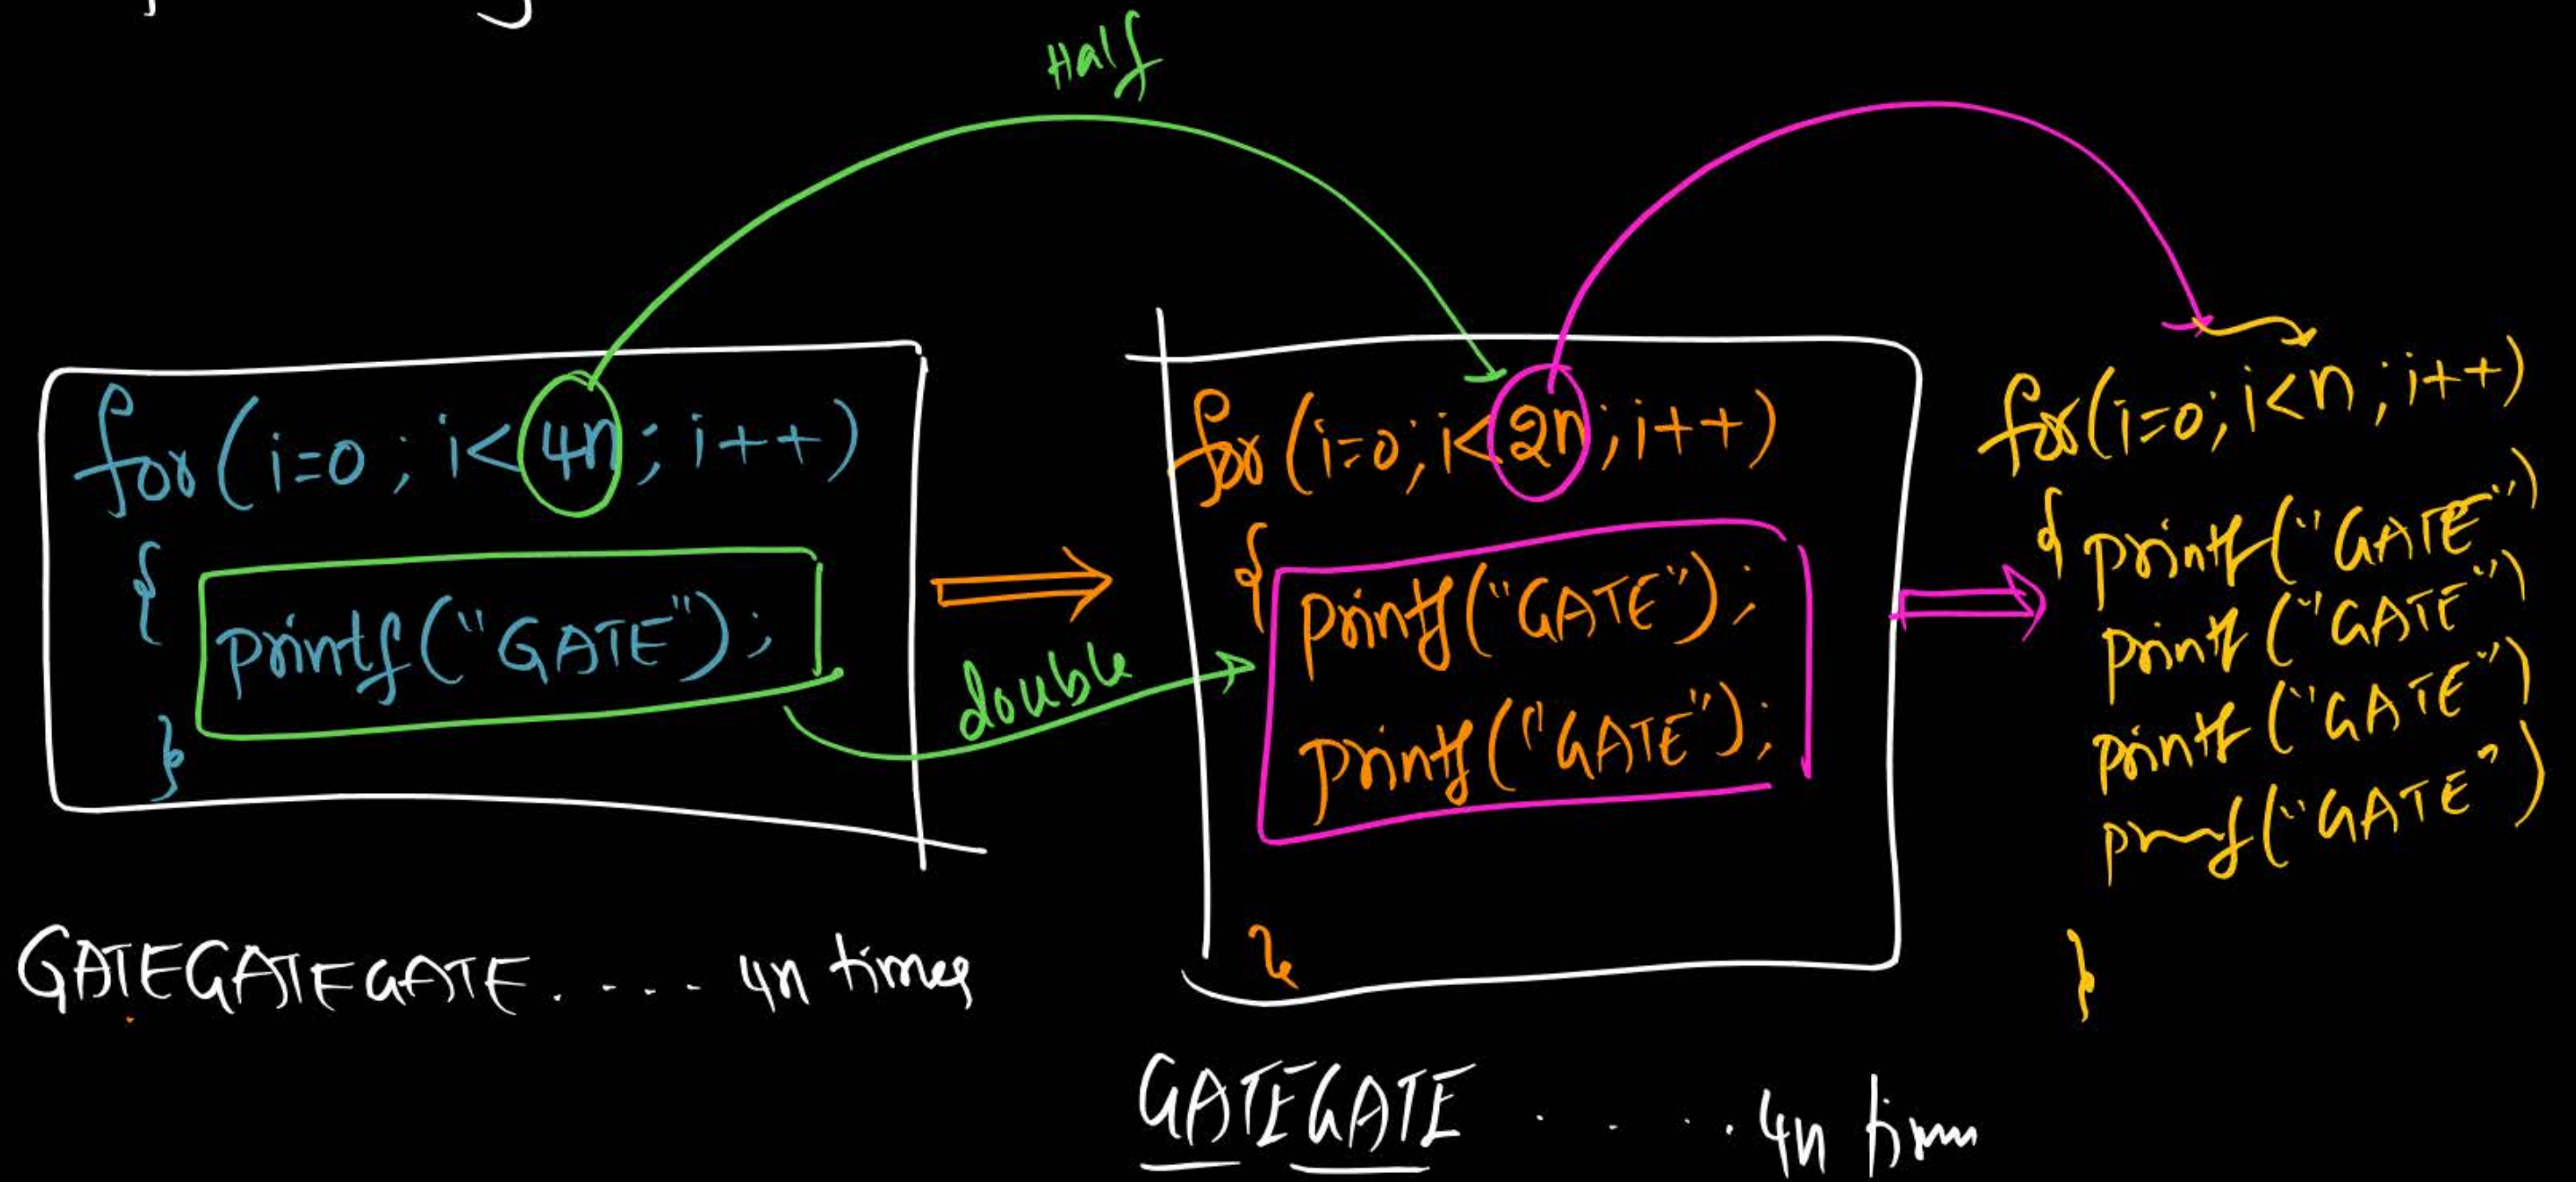 Half
for(i=0; i<4n; i++)
{
printf("GATE");
}
GATEGATEGATE..... 4n times
double
for(i=0; i<2n; i++)
{
printf("GATE");
printf("GATE");
}
GATEGATE ..... 4n
for(i=0; i<n; i++)
{ printf("GATE")
printf("GATE")
printf("GATE")
printf("GATE")
}